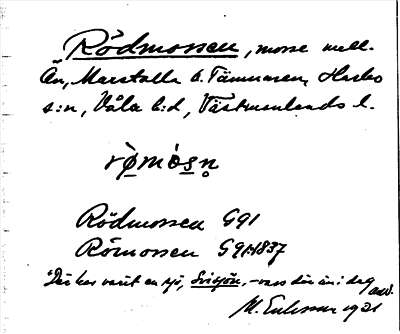 Rödmossen, mosse mell.
Ån, Marstalla o. Tämnaren, Harbo
s:n, Våla h:d, Västmanlands l.
Rödmossen G91
Römossen G91:1837
"Där har varit en sjö, Svisjön, – vass där än i dag
M. Eriksson 1921